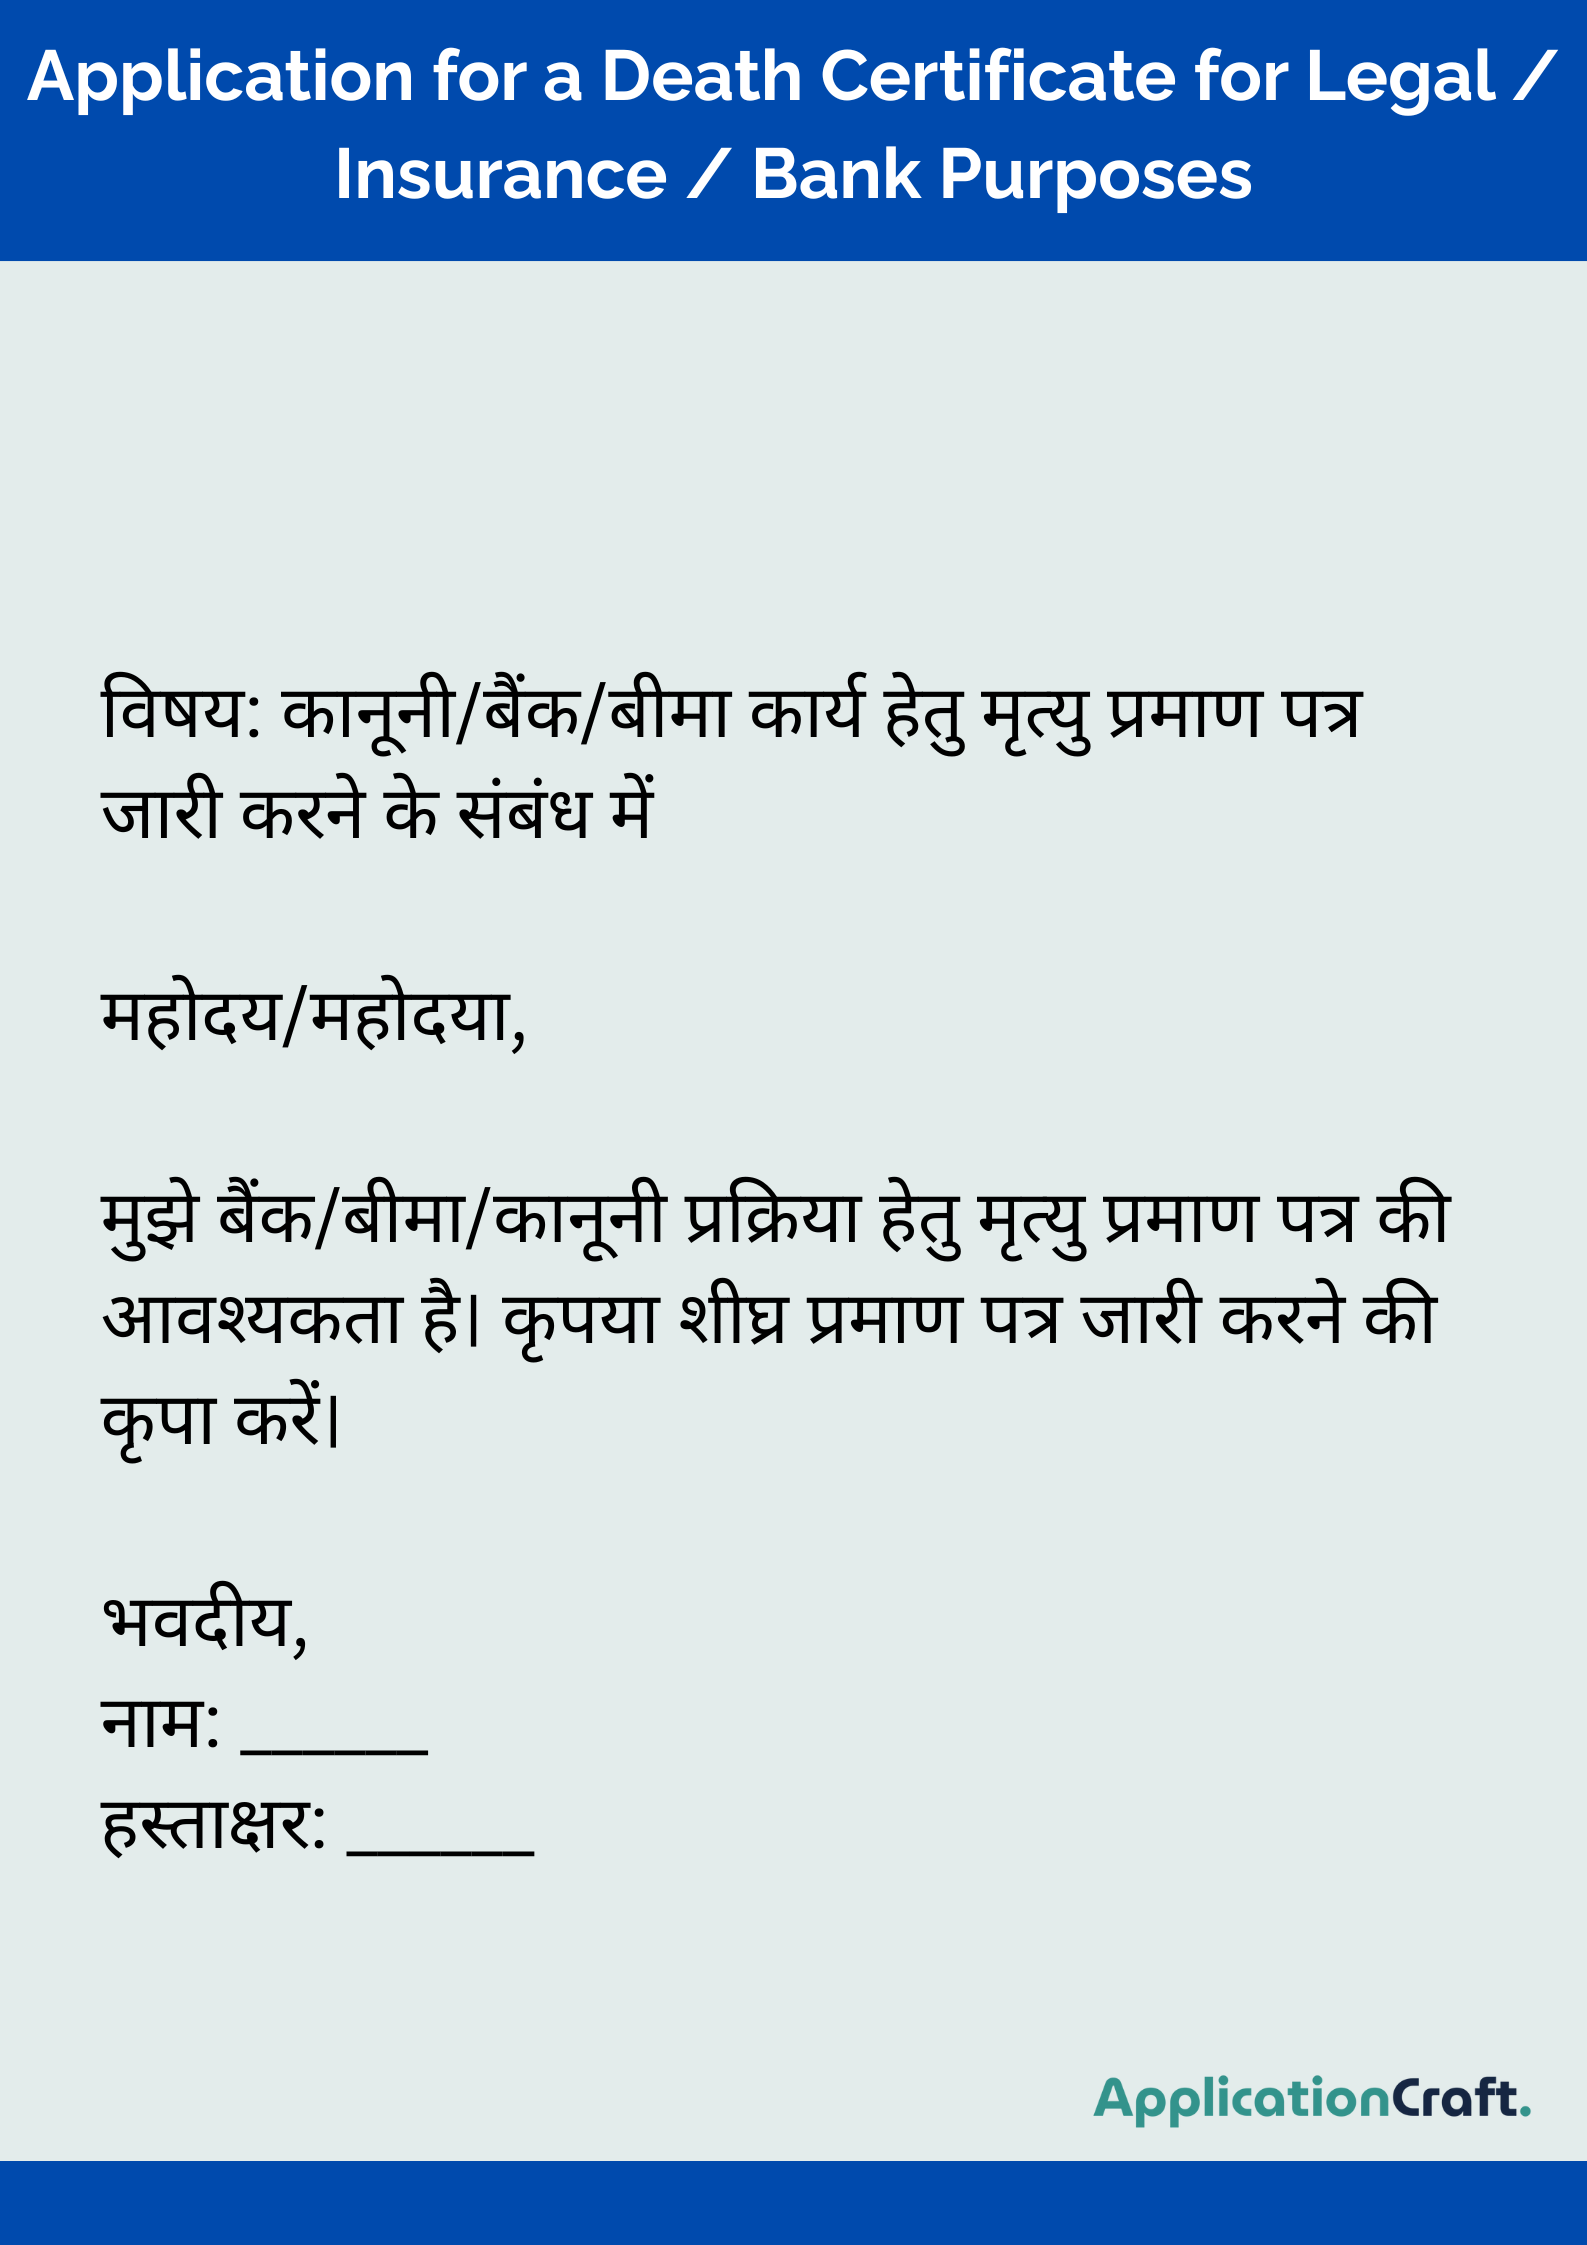 Application for a Death Certificate for Legal /
Insurance / Bank Purposes
विषय: कानूनी/बैंक/बीमा कार्य हेतु मृत्यु प्रमाण पत्र
जारी करने के संबंध में
महोदय/महोदया,
मुझे बैंक/बीमा/कानूनी प्रक्रिया हेतु मृत्यु प्रमाण पत्र की
आवश्यकता है। कृपया शीघ्र प्रमाण पत्र जारी करने की
कृपा करें।
भवदीय,
नाम: ______
हस्ताक्षर: ______
ApplicationCraft.